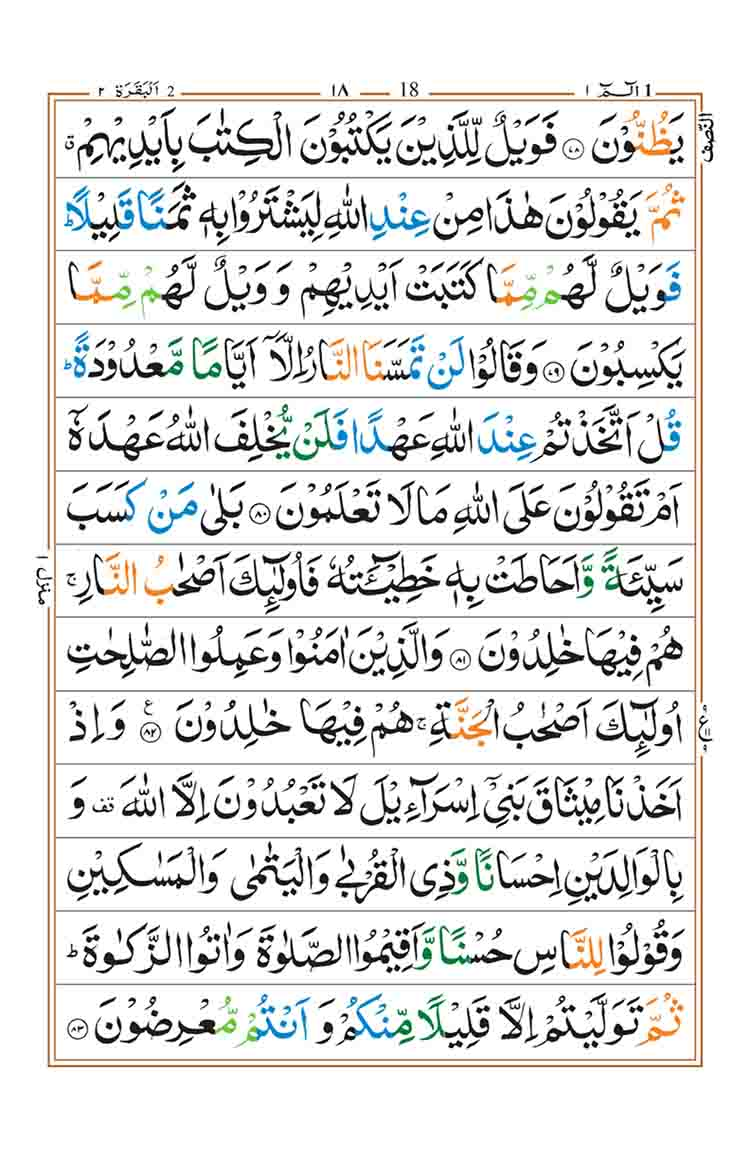 الٓـمّٓ ١ 1 — 18 — ١٨ — 2 اَلْبَقَرَة ٢
النّصف
يَظُنُّوْنَ ۝۷۸ فَوَيْلٌ لِّلَّذِيْنَ يَكْتُبُوْنَ الْكِتٰبَ بِاَيْدِيْهِمْ ق
ثُمَّ يَقُوْلُوْنَ هٰذَا مِنْ عِنْدِ اللّٰهِ لِيَشْتَرُوْا بِهٖ ثَمَنًا قَلِيْلًا ؕ
فَوَيْلٌ لَّهُمْ مِّمَّا كَتَبَتْ اَيْدِيْهِمْ وَ وَيْلٌ لَّهُمْ مِّمَّا
يَكْسِبُوْنَ ۝۷۹ وَقَالُوْا لَنْ تَمَسَّنَا النَّارُ اِلَّاۤ اَيَّامًا مَّعْدُوْدَةً ؕ
قُلْ اَتَّخَذْتُمْ عِنْدَ اللّٰهِ عَهْدًا فَلَنْ يُّخْلِفَ اللّٰهُ عَهْدَهٗۤ
اَمْ تَقُوْلُوْنَ عَلَى اللّٰهِ مَا لَا تَعْلَمُوْنَ ۝۸۰ بَلٰى مَنْ كَسَبَ
سَيِّئَةً وَّاَحَاطَتْ بِهٖ خَطِيْٓـَٔتُهٗ فَاُولٰٓئِكَ اَصْحٰبُ النَّارِ ۚ
منزل ١
هُمْ فِيْهَا خٰلِدُوْنَ ۝۸۱ وَالَّذِيْنَ اٰمَنُوْا وَعَمِلُوا الصّٰلِحٰتِ
اُولٰٓئِكَ اَصْحٰبُ الْجَنَّةِ ۚ هُمْ فِيْهَا خٰلِدُوْنَ ۝۸۲ ع وَاِذْ
اَخَذْنَا مِيْثَاقَ بَنِيْۤ اِسْرَآءِيْلَ لَا تَعْبُدُوْنَ اِلَّا اللّٰهَ قف وَ
بِالْوَالِدَيْنِ اِحْسَانًا وَّذِى الْقُرْبٰى وَالْيَتٰمٰى وَالْمَسٰكِيْنِ
وَقُوْلُوْا لِلنَّاسِ حُسْنًا وَّاَقِيْمُوا الصَّلٰوةَ وَاٰتُوا الزَّكٰوةَ ؕ
ثُمَّ تَوَلَّيْتُمْ اِلَّا قَلِيْلًا مِّنْكُمْ وَ اَنْتُمْ مُّعْرِضُوْنَ ۝۸۳